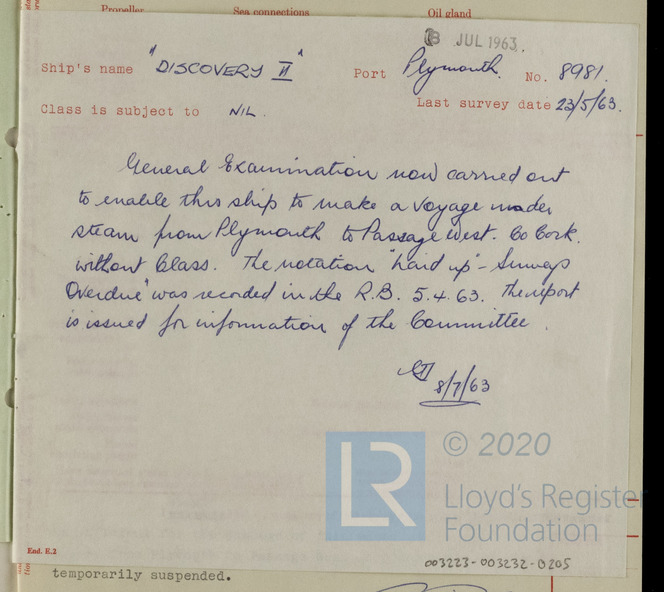 Propeller Sea connections Oil gland
8 JUL 1963.
Ship's name "DISCOVERY II" Port Plymouth. No. 8981.
Class is subject to NIL. Last survey date 23/5/63.
General Examination now carried out
to enable this ship to make a voyage under
steam from Plymouth to Passage West. Co Cork.
without Class. The notation "Laid up - Surveys
Overdue" was recorded in the R.B. 5.4.63. The report
is issued for information of the Committee.
8/7/63
LR © 2020
Lloyd's Register
Foundation
End. E.2
003223-003232-0205
temporarily suspended.